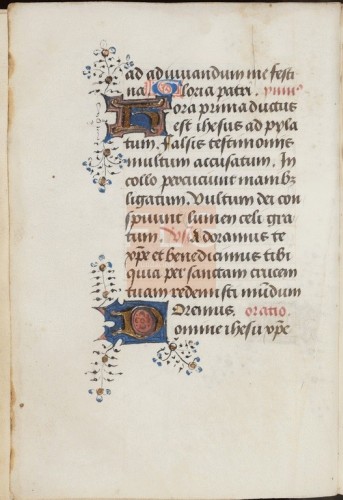 ad adiuuandum me festi
na. Gloria patri. ymn9
Hora prima ductus
est ihesus ad pyla
tum. falsis testimonis
multum accusatum. In
collo percuciunt manib3
ligatum. Vultum dei con
spuunt lumen celi gra
tum. Vs. Adoramus te
xp̄e et benedicimus tibi
quia per sanctam crucem
tuam redemisti mūdum
Oremus. oratio.
Domine ihesu xp̄e